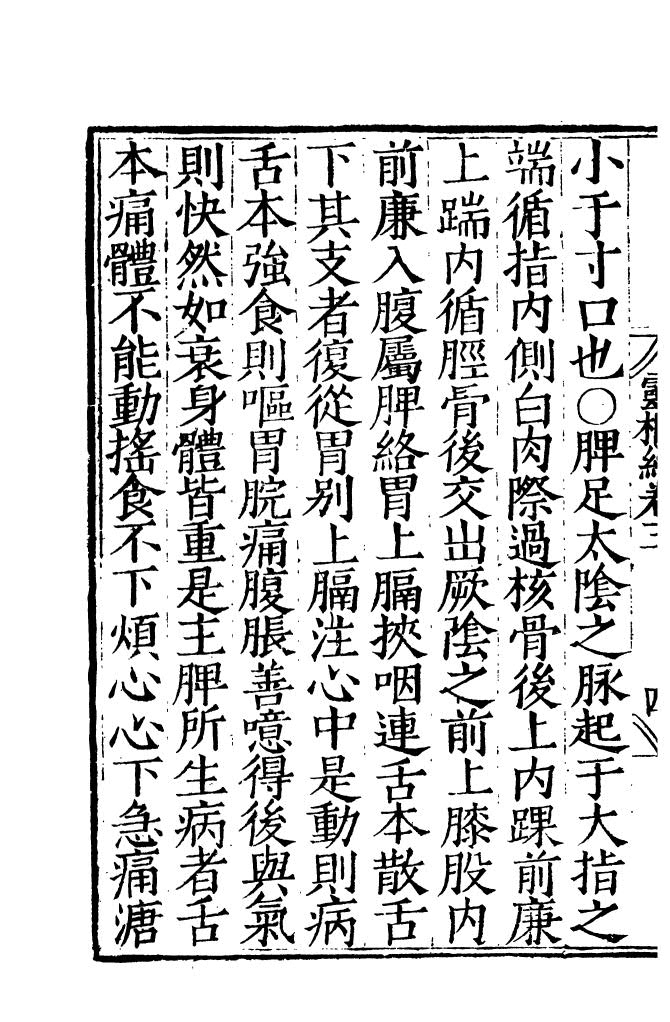 靈樞經卷三
四
小于寸口也○脾足太陰之脉起于大指之
端循指内側白肉際過核骨後上内踝前廉
上踹内循脛骨後交出厥陰之前上膝股内
前廉入腹屬脾絡胃上膈挾咽連舌本散舌
下其支者復從胃别上膈注心中是動則病
舌本強食則嘔胃脘痛腹脹善噫得後與氣
則快然如衰身體皆重是主脾所生病者舌
本痛體不能動揺食不下煩心心下急痛溏